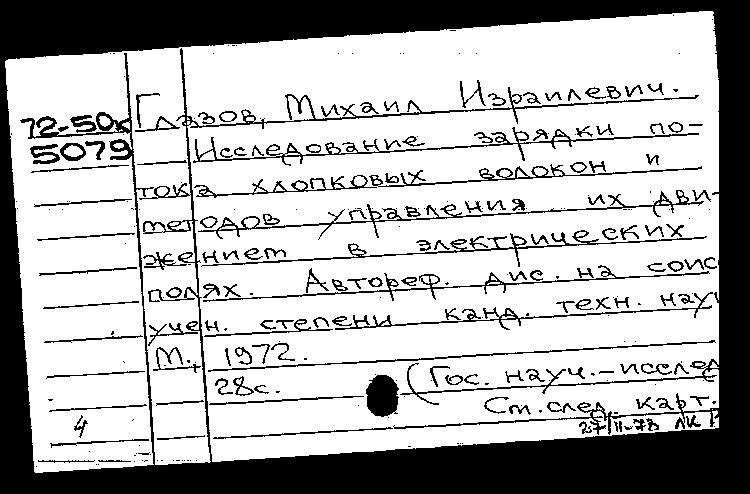 72-50к
5079
Глазов, Михаил Израилевич.
Исследование зарядки по-
тока хлопковых волокон и
методов управления их дви-
жением в электрических
полях. Автореф. дис. на соис
учен. степени канд. техн. наук
М., 1972.
28с.
(Гос. науч.-исслед
См. след. карт.
4
27/II-73 ЛК